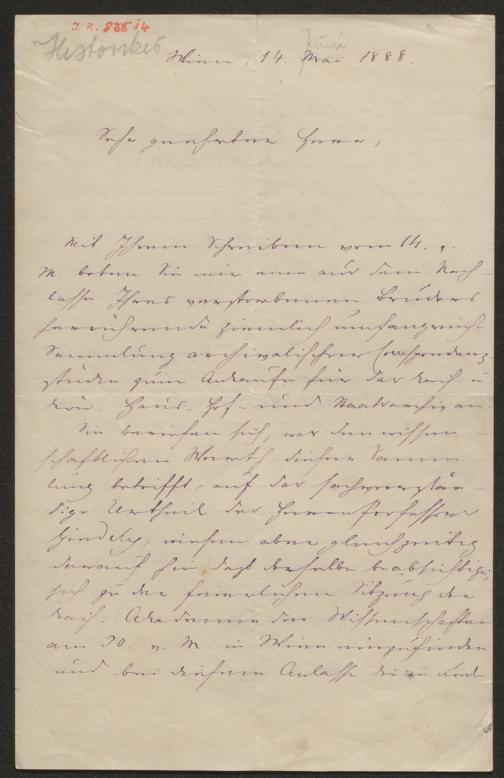 I. N. 83614
Historiker
Juni
Wien, 14. Mai 1888.
Sehr geehrter Herr,
Mit Ihrem Schreiben vom 14. v.
M. boten Sie mir eine aus dem Nach-
lasse Ihres verstorbenen Bruders
herrührende ziemlich umfangreiche
Sammlung archivalischer Correspondenz
stücke zum Ankaufe für das kais. u.
kön. Haus- Hof- und Staatsarchiv an.
Sie beriefen sich, was den wissen-
schaftlichen Werth dieser Samm-
lung betrifft, auf das sachverstän-
dige Urtheil des Herrn Professors
Gindely, wiesen aber gleichzeitig
darauf hin, daß derselbe beabsichtige,
sich zu der feierlichen Sitzung der
kais. Akademie der Wissenschaften
am 30. v. M. in Wien einzufinden
und bei diesem Anlasse die in